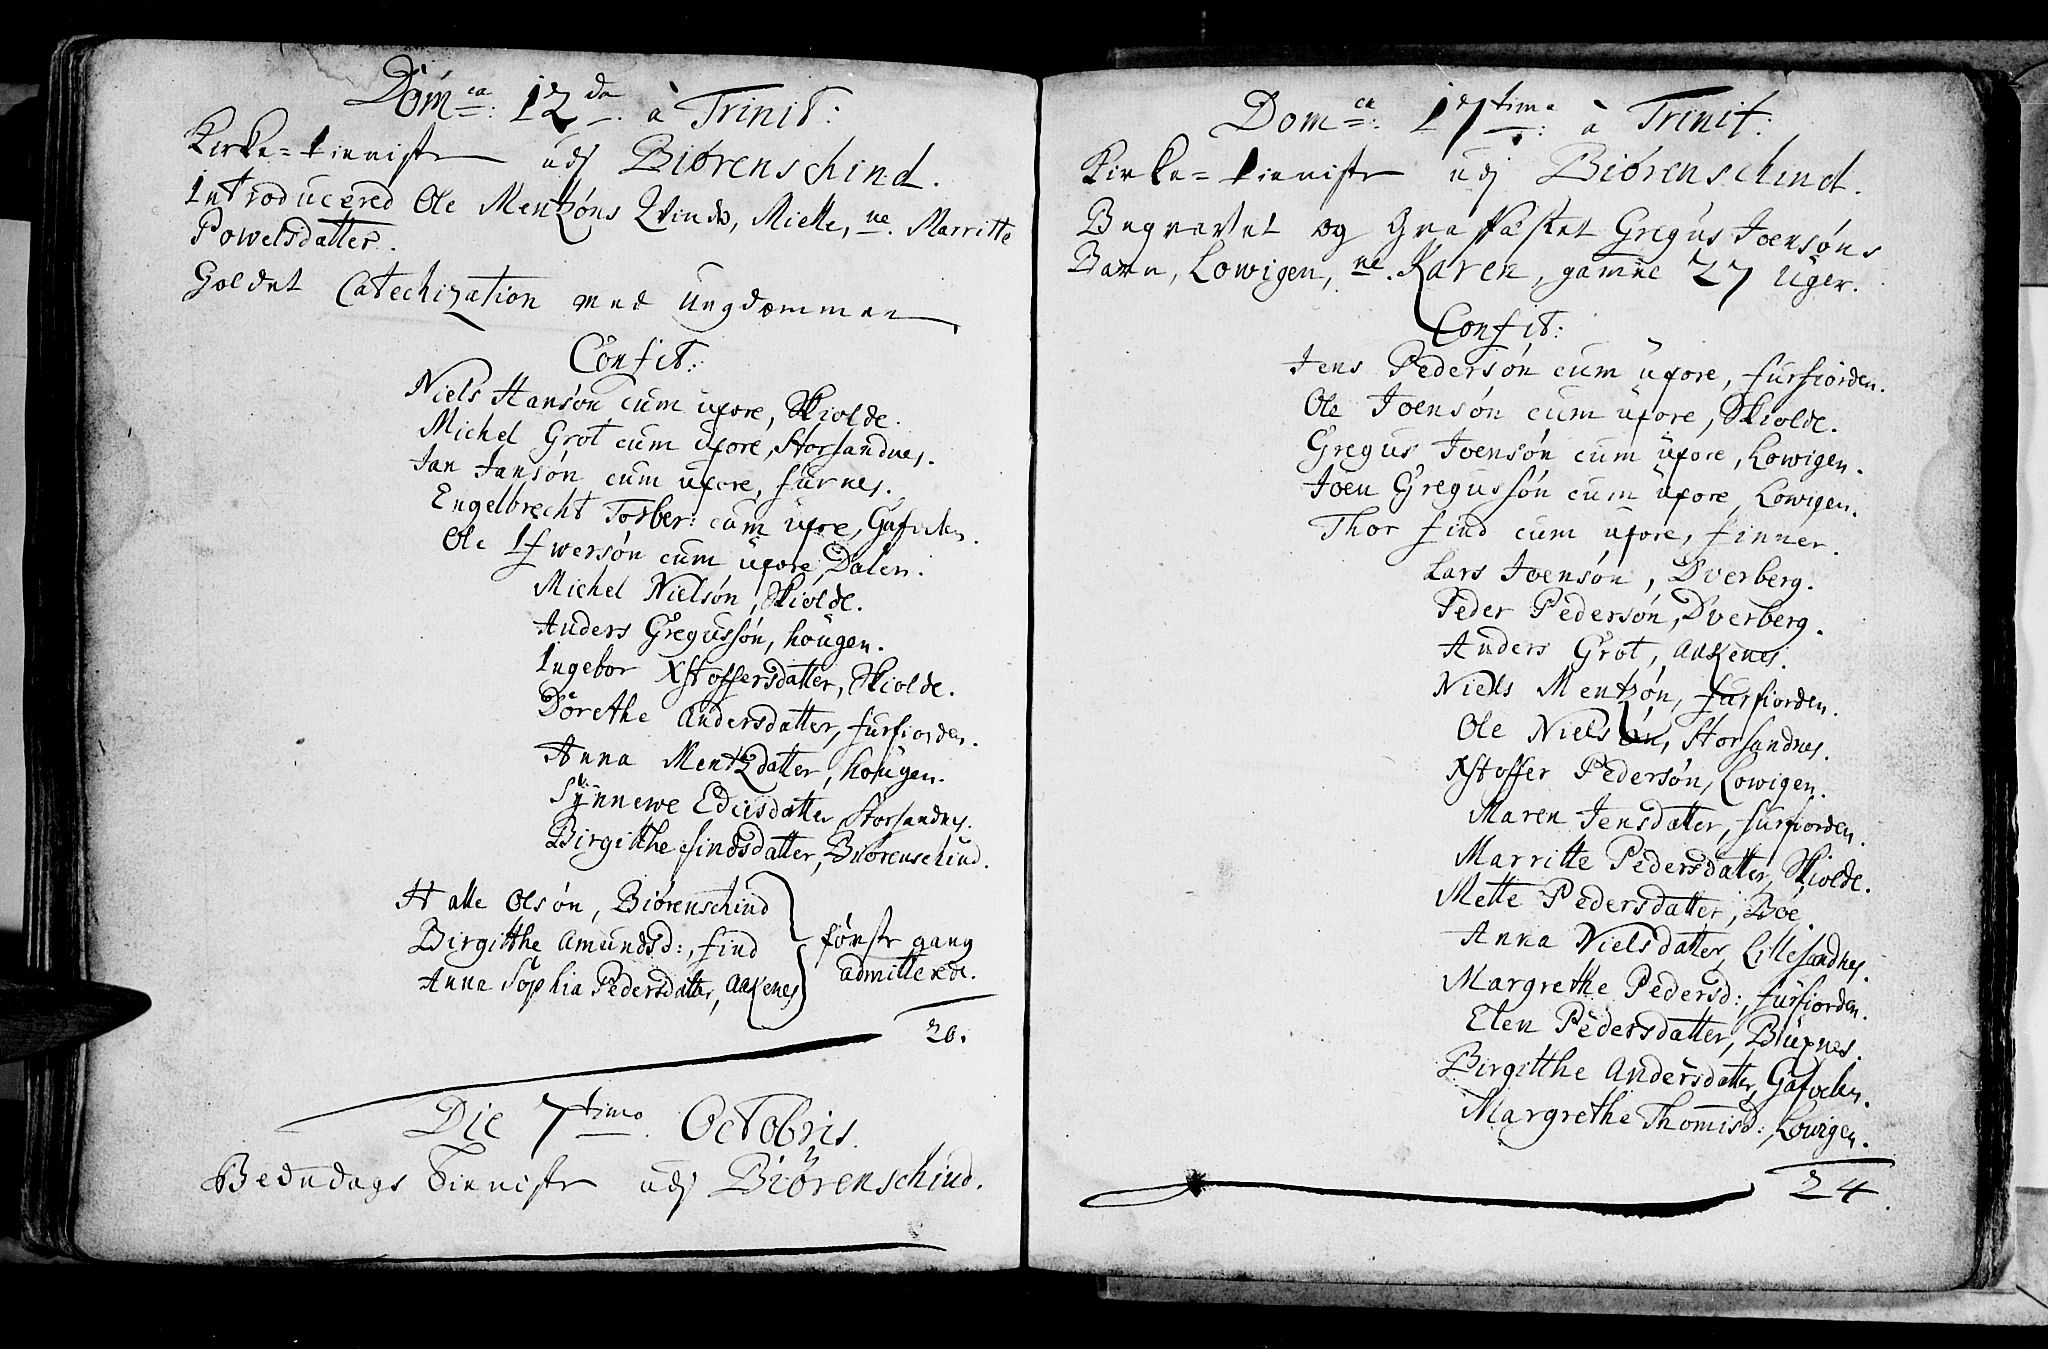 Dom<sup>ca</sup>: 12<sup>da</sup>. à Trinit:
Kirke=Tieniste udj Biørenschind.
Introducered Ole Mentzøns Qvinde, Mielle, ne. Marritte
Powelsdatter.
Holdet Catechization med Ungdommen
Confit:
Niels Hansøn cum uxore, Skiolde.
Michel Grot cum uxore, Storsandnes.
Jan Jansøn cum uxore, Furnes.
Engelbrecht Torber: cum uxore, Gafvelen.
Ole Ifwersøn cum uxore, Dalen.
Michel Nielsøn, Skiolde.
Anders Gregussøn, Hougen.
Ingebor Xstoffersdatter, Skiolde.
Dorethe Andersdatter, Furfiorden.
Anna Mentzdatter, Hougen.
Synnewe Edisdatter, Storsandnes.
Birgitthe Findsdatter, Biørenschind.
Halle Olsøn, Biørenschind
Birgitthe Amundsd:, Find
Anne Sophia Pedersdatter, Aaxenes
første gang
admitterede.
20.
Die 7<sup>timo</sup> Octobris.
Bededags Tieniste udj Biørenschind.
Dom<sup>ca</sup>: 17<sup>tima</sup>: à Trinit:
Kirke=Tieniste udj Biørenschind.
Begravet og Graffæstet Gregus Joensøns
Barn, Lowigen, ne. Karen, gamel 27 Uger.
Confit:
Jens Pedersøn cum uxore, Furfiorden.
Ole Joensøn cum uxore, Skiolde.
Gregus Joensøn cum uxore, Lowigen.
Joen Gregussøn cum uxore, Lowigen.
Thor Find cum uxore, Finner.
Lars Joensøn, Dverberg.
Peder Pedersøn, Dverberg.
Anders Grot, Aaxenes.
Niels Mentzøn, Furfiorden.
Ole Nielsøn, Storsandnes.
Xstoffer Pedersøn, Lowigen.
Maren Jensdatter, Furfiorden.
Marritte Pedersdatter, Skiolde.
Mette Pedersdatter, Böe.
Anna Nielsdatter, Lillesandnes.
Margrethe Pedersd:, Furfiorden.
Elen Pedersdatter, Büxnes.
Birgitthe Andersdatter, Gafvelen.
Margrethe Thomisd:, Lowigen.
24.